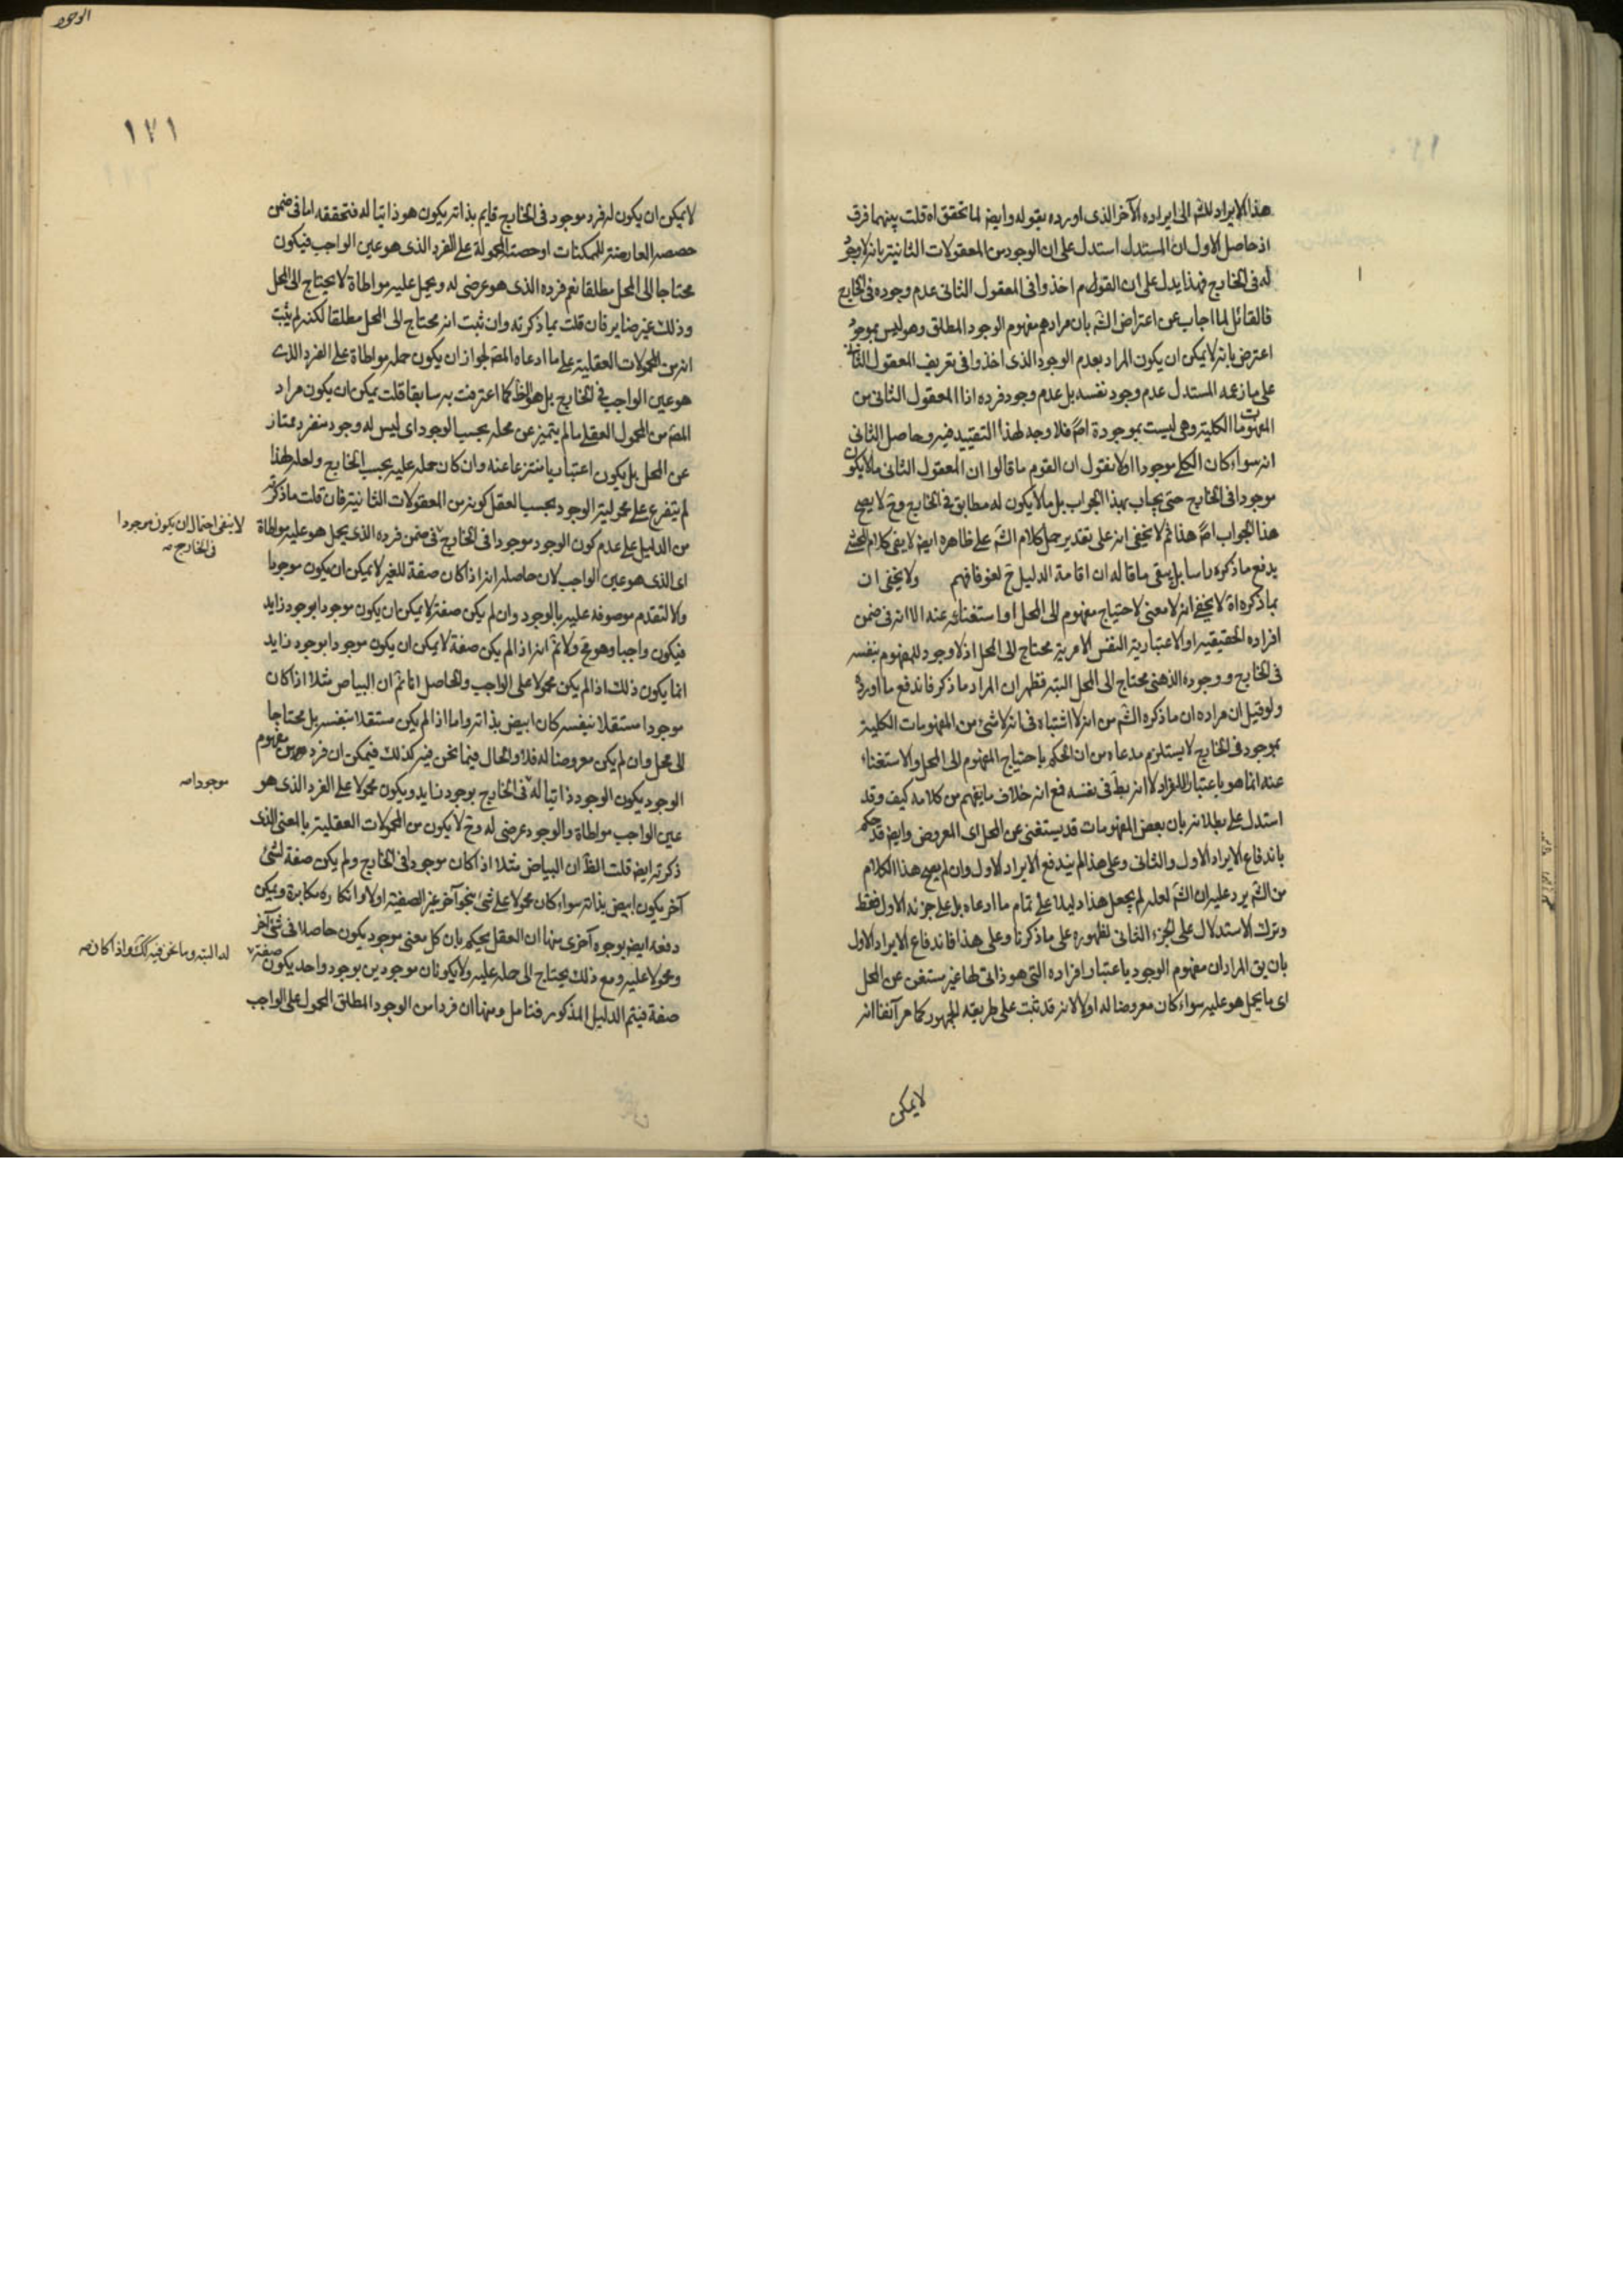 هذا الايراد للش الى ايراده الآخر الذى اورده بقوله وايض لما تحقق اه قلت بينهما فرق
اذ حاصل الاول ان المستدل استدل على ان الوجود من المعقولات الثانية بانه لا وجود
له فى الخارج فهذا يدل على ان القوم اخذوا فى المعقول الثانى عدم وجوده فى الخارج
فالقائل لما اجاب عن اعتراض الش بان مرادهم مفهوم الوجود المطلق وهو ليس بموجود
اعترض بانه لا يمكن ان يكون المراد بعدم الوجود الذى اخذوا فى تعريف المعقول الثانى
على ما زعمه المستدل عدم وجود نفسه بل عدم وجود فرده اذ المعقول الثانى من
المفهومات الكلية وهى ليست بموجودة اصً فلا وجه لهذا التقييد فيه وحاصل الثانى
انه سواء كان الكلى موجودا اولا نقول ان القوم ما قالوا ان المعقول الثانى ما لا يكون
موجودا فى الخارج حتى يجاب بهذا الجواب بل ما لا يكون له مطابق فى الخارج وح لا يصح
هذا الجواب اصً هذا ثم لا يخفى انه على تقدير حمل كلام الش على ظاهره ايض لا ينفى كلام المحشى
يدفع ما ذكره راسا بل يبقى ما قاله ان اقامة الدليل ح لغو فافهم ولا يخفى ان
بما ذكره اه لا يخفى انه لا معنى لاحتياج مفهوم الى المحل او استغنائه عنه الا انه فى ضمن
افراده الحقيقيه او الاعتبارية النفس الامرية محتاج الى المحل اذ لا وجود للمفهوم بنفسه
فى الخارج ووجوده الذهنى محتاج الى المحل البته فظهر ان المراد ما ذكر فاندفع ما اورده
ولو قيل ان مراده ان ما ذكره الش من انه لا اشتباه فى انه لا شئ من المفهومات الكلية
بموجود فى الخارج لا يستلزم مدعاه من ان الحكم باحتياج المفهوم الى المحل والاستغناء
عنه انما هو باعتبار الافراد لا انه بط فى نفسه فمع انه خلاف ما يفهم من كلامه كيف وقد
استدل على بطلانه بان بعض المفهومات قد يستغنى عن المحل اى المعروض وايض قد حكم
باندفاع الايراد الاول والثانى وعلى هذا لم يندفع الايراد الاول وان لم يصح هذا الكلام
من الش يرد عليه ان الش لعله لم يجعل هذا دليلا على تمام ما ادعاه بل على جزئه الاول فقط
وترك الاستدلال على الجزء الثانى لظهوره على ما ذكرنا وعلى هذا فاندفاع الايراد الاول
بان يق المراد ان مفهوم الوجود باعتبار افراده التى هو ذاتى لها غير مستغن عن المحل
اى ما يحمل هو عليه سواء كان معروضا له اولا لانه قد ثبت على طريقة الجمهور كما مر آنفا انه
لا يمكن
١٧١
لا يمكن ان يكون له فرد موجود فى الخارج قايم بذاته يكون هو ذاتيا له فتحققه اما فى ضمن
حصصه العارضة للممكنات او حصته المحمولة على الفرد الذى هو عين الواجب فيكون
محتاجا الى المحل مطلقا نعم فرده الذى هو عرضى له ويحمل عليه مواطاة لا يحتاج الى المحل
وذلك غير ضاير فان قلت بما ذكرته وان ثبت انه محتاج الى المحل مطلقا لكنه لم يثبت
انه من المحمولات العقلية على ما ادعاه المص لجواز ان يكون حمله مواطاة على الفرد الذى
هو عين الواجب فى الخارج بل هو الظ كما اعترفت به سابقا قلت يمكن ان يكون مراد
المص من المحمول العقلى ما لم يتميز عن محله بحسب الوجود اى ليس له وجود منفرد ممتاز
عن المحل بل يكون اعتباريا منتزعا عنه وان كان حمله عليه بحسب الخارج ولعله لهذا
لم يتفرع على محمولية الوجود بحسب العقل كونه من المعقولات الثانية فان قلت ما ذكرته
من الدليل على عدم كون الوجود موجودا فى الخارج فى ضمن فرده الذى يحمل هو عليه مواطاة
لا ينفى احتمال ان يكون موجودا
فى الخارج صه
اى الذى هو عين الواجب لان حاصله انه اذا كان صفة للغير لا يمكن ان يكون موجودا
والا لتقدم موصوفه عليه بالوجود وان لم يكن صفة لا يمكن ان يكون موجودا بوجود زايد
فيكون واجبا وهو مح ولا نم انه اذا لم يكن صفة لا يمكن ان يكون موجودا بوجود زايد
انما يكون ذلك اذا لم يكن محمولا على الواجب والحاصل انا نم ان البياض مثلا اذا كان
موجودا مستقلا بنفسه كان ابيض بذاته واما اذا لم يكن مستقلا بنفسه بل محتاجا
الى محل وان لم يكن معروضا له فلا والحال فيما نحن فيه كذلك فيمكن ان فرد من مفهوم
الوجود يكون الوجود ذاتيا له فى الخارج بوجود زايد ويكون محمولا على الفرد الذى هو
موجودا صه
عين الواجب مواطاة والوجود عرضى له وح لا يكون من المحمولات العقلية بالمعنى الذى
ذكرته ايض قلت الظ ان البياض مثلا اذا كان موجودا فى الخارج ولم يكن صفة لشئ
آخر يكون ابيض بذاته سواء كان محمولا على شئ بنحو آخر غير الصفية اولا وانكاره مكابرة ويمكن
دفعه ايض بوجوه آخرى منها ان العقل يحكم بان كل معنى موجود يكون حاصلا فى شئ آخر
ومحمولا عليه ومع ذلك يحتاج الى حمله عليه ولا يكونان موجودين بوجود واحد يكون صفة
له البته وما نحن فيه كك واذا كان صه
صفة فيتم الدليل المذكور فتامل ومنها ان فردا من الوجود المطلق المحمول على الواجب